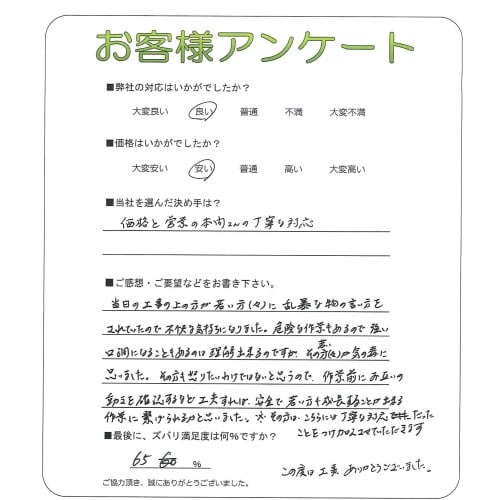 お客様アンケート
■弊社の対応はいかがでしたか？
大変良い 良い 普通 不満 大変不満
■価格はいかがでしたか？
大変安い 安い 普通 高い 大変高い
■当社を選んだ決め手は？
価格と営業の本向さんの丁寧な対応
■ご感想・ご要望などをお書き下さい。
当日の工事の上の方が若い方(々)に乱暴な物の言い方を
されていたので不快な気持ちになりました。危険な作業もあるので強い
口調になることもあるのは理解出来るのですが、その若い方(々)が気の毒に
思いました。その方も怒りたいわけではないと思うので、作業前にお互いの
動きを確認するなど工夫すれば、安全で若い方も成長することが出来る
作業に繋げられるかと思いました。※その方は、こちらには丁寧な対応だった
ことをつけ加えさせていただきます
■最後に、ズバリ満足度は何%ですか？
65 %
この度は工事、ありがとうございました。
ご協力頂き、誠にありがとうございました。